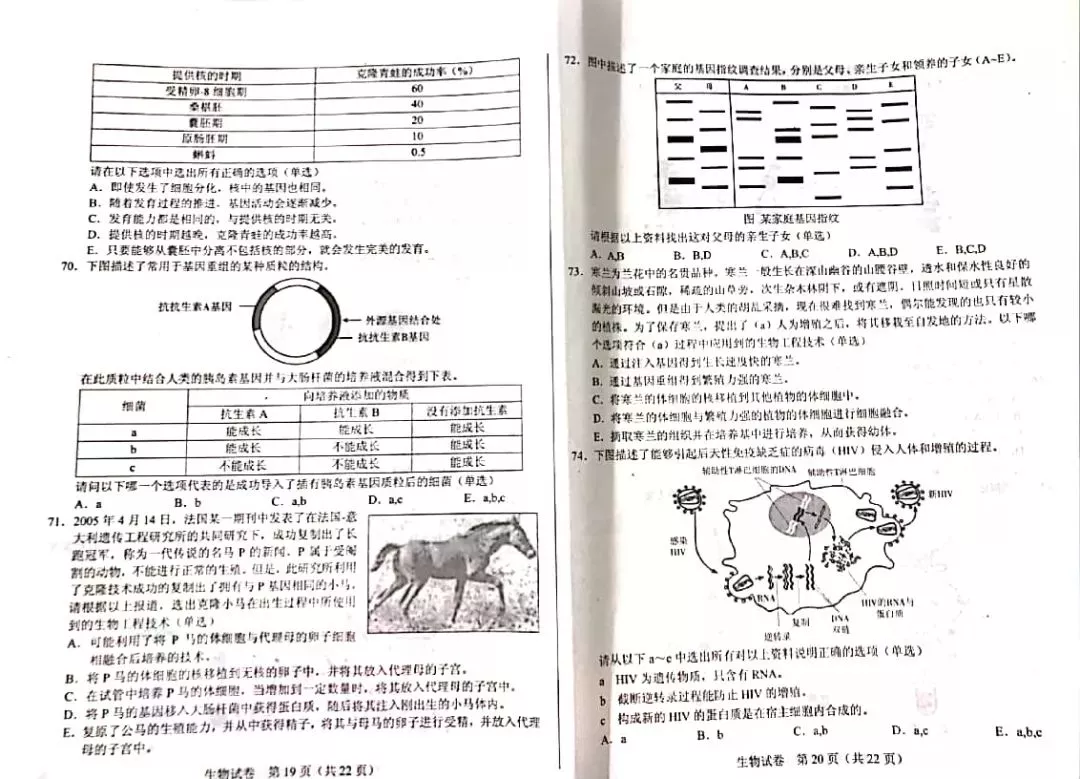 提供核的时期 克隆青蛙的成功率（%）
受精卵-8 细胞期 60
桑椹胚 40
囊胚期 20
原肠胚期 10
蝌蚪 0.5
请在以下选项中选出所有正确的选项（单选）
A．即使发生了细胞分化，核中的基因也相同。
B．随着发育过程的推进，基因活动会逐渐减少。
C．发育能力都是相同的，与提供核的时期无关。
D．提供核的时期越晚，克隆青蛙的成功率越高。
E．只要能够从囊胚中分离不包括核的部分，就会发生完美的发育。
70．下图描述了常用于基因重组的某种质粒的结构。
抗抗生素A基因
外源基因结合处
抗抗生素B基因
在此质粒中结合人类的胰岛素基因并与大肠杆菌的培养液混合得到下表。
细菌 向培养液添加的物质
抗生素 A 抗生素 B 没有添加抗生素
a 能成长 能成长 能成长
b 能成长 不能成长 能成长
c 不能成长 不能成长 能成长
请问以下哪一个选项代表的是成功导入了插有胰岛素基因质粒后的细菌（单选）
A．a B．b C．a,b D．a,c E．a,b,c
71．2005 年 4 月 14 日，法国某一期刊中发表了在法国-意
大利遗传工程研究所的共同研究下，成功复制出了长
跑冠军，称为一代传说的名马 P 的新闻。P 属于受阉
割的动物，不能进行正常的生殖。但是，此研究所利用
了克隆技术成功的复制出了拥有与 P 基因相同的小马。
请根据以上报道，选出克隆小马在出生过程中所使用
到的生物工程技术（单选）
A．可能利用了将 P 马的体细胞与代理母的卵子细胞
相融合后培养的技术。
B．将 P 马的体细胞的核移植到无核的卵子中，并将其放入代理母的子宫。
C．在试管中培养 P 马的体细胞，当增加到一定数量时，将其放入代理母的子宫中。
D．将 P 马的基因移入大肠杆菌中获得蛋白质，随后将其注入刚出生的小马体内。
E．复原了公马的生殖能力，并从中获得精子，将其与母马的卵子进行受精，并放入代理
母的子宫中。
生物试卷 第 19 页（共 22 页）
72．图中描述了一个家庭的基因指纹调查结果，分别是父母、亲生子女和领养的子女（A~E）。
父 母 A B C D E
图 某家庭基因指纹
请根据以上资料找出这对父母的亲生子女（单选）
A．A,B B．B,D C．A,B,C D．A,B,D E．B,C,D
73．寒兰为兰花中的名贵品种，寒兰一般生长在深山幽谷的山腰谷壁，透水和保水性良好的
倾斜山坡或石隙，稀疏的山草旁，次生杂木林阴下，或有遮阴、日照时间短或只有星散
漏光的环境。但是由于人类的胡乱采摘，现在很难找到寒兰，偶尔能发现的也只有较小
的植株。为了保存寒兰，提出了（a）人为增殖之后，将其移栽至自发地的方法。以下哪
个选项符合（a）过程中应用到的生物工程技术（单选）
A．通过注入基因得到生长速度快的寒兰。
B．通过基因重组得到繁殖力强的寒兰。
C．将寒兰的体细胞的核移植到其他植物的体细胞中。
D．将寒兰的体细胞与繁殖力强的植物的体细胞进行细胞融合。
E．摘取寒兰的组织并在培养基中进行培养，从而获得幼体。
74．下图描述了能够引起后天性免疫缺乏症的病毒（HIV）侵入人体和增殖的过程。
辅助性T淋巴细胞的DNA 辅助性T淋巴细胞
新HIV
感染
HIV
RNA
复制
DNA
双链
HIV的RNA与
蛋白质
逆转录
请从以下 a~c 中选出所有对以上资料说明正确的选项（单选）
a HIV 为遗传物质，只含有 RNA。
b 截断逆转录过程能防止 HIV 的增殖。
c 构成新的 HIV 的蛋白质是在宿主细胞内合成的。
A．a B．b C．a,b D．a,c E．a,b,c
生物试卷 第 20 页（共 22 页）